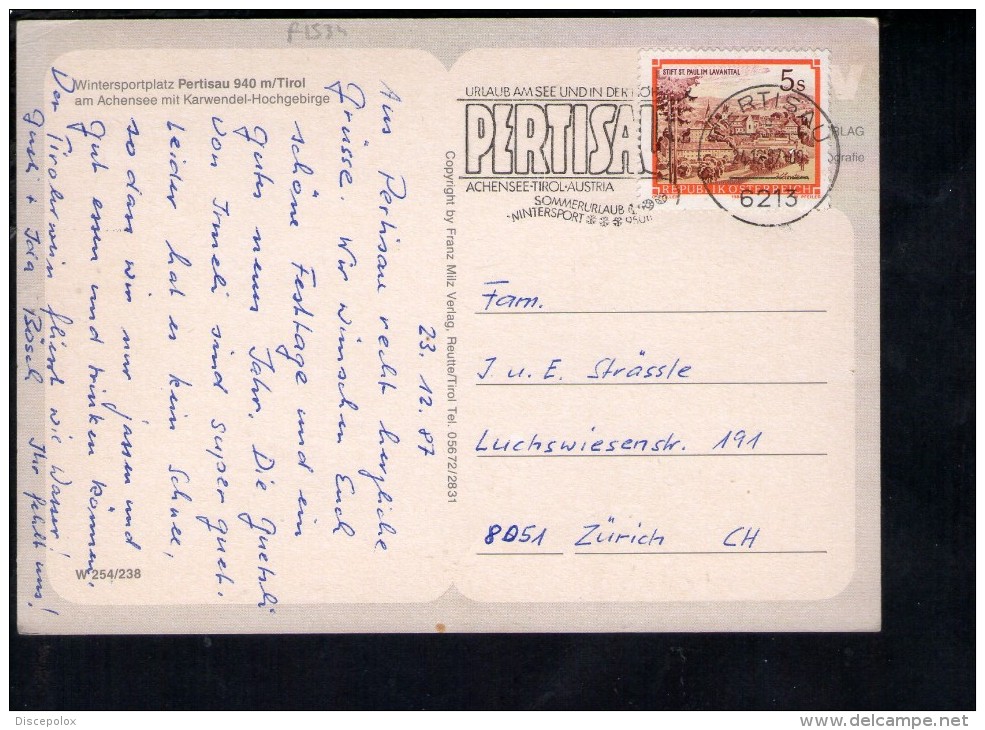 F1534
Wintersportplatz Pertisau 940 m/Tirol
am Achensee mit Karwendel-Hochgebirge
23. 12. 87
Aus Pertisau recht herzliche
Grüsse. Wir wünschen Euch
schöne Festtage und ein
gutes neues Jahr. Die Guetzli
von Irmeli sind super guet.
Leider hat es kein Schnee,
so dass wir nur jassen und
gut essen und trinken können.
Der Tirolerwein fliesst wie Wasser!
Ihr fehlt uns!
Gusti + Ida Bösch
W 254/238
Copyright by Franz Milz Verlag, Reutte/Tirol Tel. 05672/2831
URLAUB AM SEE UND IN DER
PERTISAU
ACHENSEE-TIROL-AUSTRIA
SOMMERURLAUB
WINTERSPORT 950m
STIFT ST. PAUL IM LAVANTTAL
5 S
REPUBLIK ÖSTERREICH
PERTISAU
6213
RLAG
grafie
Fam.
J. u. E. Strässle
Luchswiesenstr. 191
8051 Zürich CH
Discepolox
www.delcampe.net